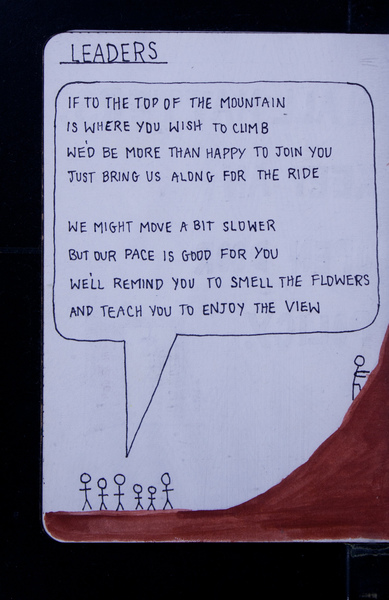 LEADERS
IF TO THE TOP OF THE MOUNTAIN
IS WHERE YOU WISH TO CLIMB
WE'D BE MORE THAN HAPPY TO JOIN YOU
JUST BRING US ALONG FOR THE RIDE
WE MIGHT MOVE A BIT SLOWER
BUT OUR PACE IS GOOD FOR YOU
WE'LL REMIND YOU TO SMELL THE FLOWERS
AND TEACH YOU TO ENJOY THE VIEW